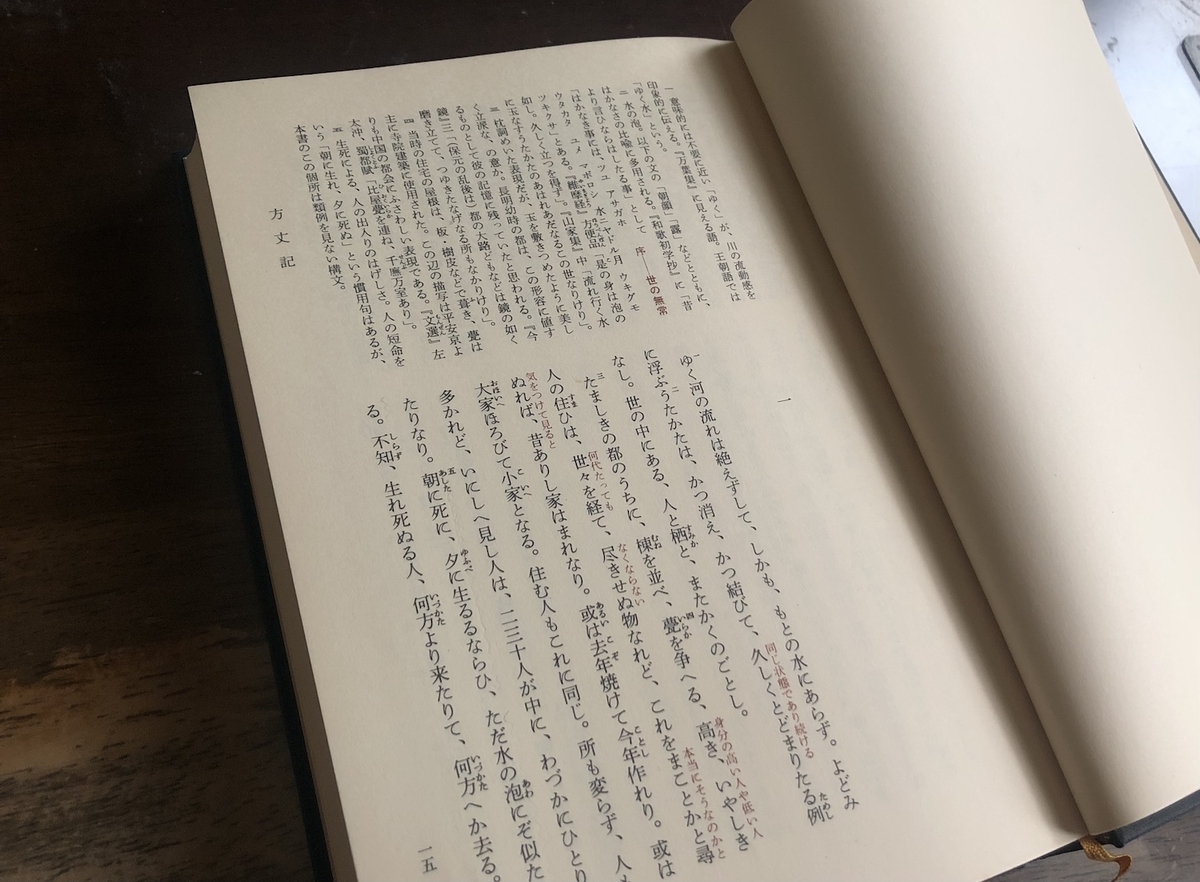 一 意味的には不要に近い「ゆく」が、川の流動感を
印象的に伝える。『万葉集』に見える語。王朝語では
「ゆく水」という。
二 水の泡。以下の文の「朝顔」「露」などとともに、
はかなさの比喩に多用される。『和歌初学抄』に「昔
より言ひならはしたる事」として
「はかなき事には、ツユ アサガホ
ウタカタ ユメ マボロシ 水ニヤドル月 ウキグモ
ツキクサ」とある。『維摩経』方便品「是の身は泡の
如し。久しく立つを得ず」。『山家集』中「流れ行く水
に玉なすうたかたのあはれあだなるこの世なりけり」。
三 枕詞めいた表現だが、玉を敷きつめたように美し
く立派な、の意か。長明幼時の都は、この形容に値す
るものとして彼の記憶に残っていたと思われる。『今
鏡』三「(保元の乱後は)都の大路どもなどは鏡の如く
磨き立てて、つゆきたなげなる所もなかりけり」。
四 当時の住宅の屋根は、板・樹皮などで葺き、甍は
主に寺院建築に使用された。この辺の描写は平安京よ
りも中国の都会にふさわしい表現である。『文選』左
太沖、蜀都賦「比屋甍を連ね、千廡万室あり」。
五 生死による、人の出入りのはげしさ。人の短命を
いう「朝に生れ、夕に死ぬ」という慣用句はあるが、
本書のこの個所は類例を見ない構文。
序――世の無常
方丈記
一
ゆく河の流れは絶えずして、しかも、もとの水にあらず。よどみ
に浮ぶうたかたは、かつ消え、かつ結びて、久しくとどまりたる例
同じ状態であり続ける
なし。世の中にある、人と栖と、またかくのごとし。
たましきの都のうちに、棟を並べ、甍を争へる、高き、いやしき
身分の高い人や低い人
人の住ひは、世々を経て、尽きせぬ物なれど、これをまことかと尋
何代たっても
なくならない
本当にそうなのかと
ぬれば、昔ありし家はまれなり。或は去年焼けて今年作れり。或は
気をつけて見ると
大家ほろびて小家となる。住む人もこれに同じ。所も変らず、人も
多かれど、いにしへ見し人は、二三十人が中に、わづかにひとり
たりなり。朝に死に、夕に生るるならひ、ただ水の泡にぞ似た
る。不知、生れ死ぬる人、何方より来たりて、何方へか去る。
一五